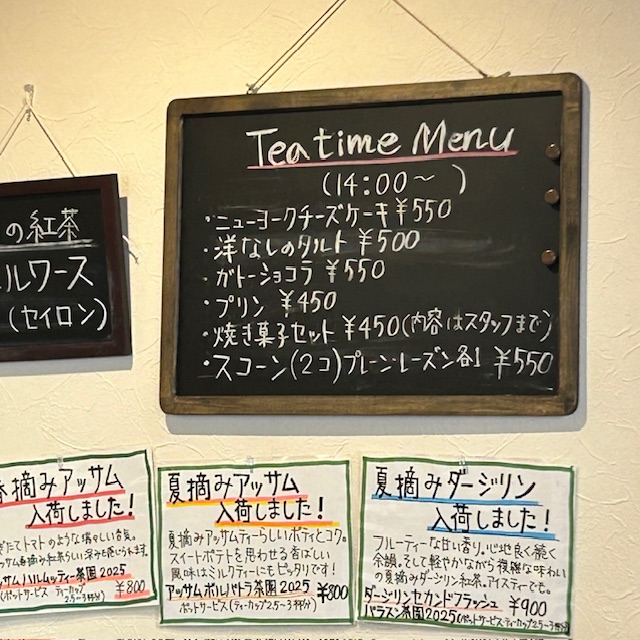 Teatime Menu
(14:00～ )
・ニューヨークチーズケーキ ¥550
・洋なしのタルト ¥500
・ガトーショコラ ¥550
・プリン ¥450
・焼き菓子セット ¥450(内容はスタッフまで)
・スコーン(2コ)プレーン・レーズン各1 ¥550
の紅茶
ルワース
(セイロン)
摘みアッサム
入荷しました!
たてトマトのような瑞々しい香気。
¥800
サムハルムッティー茶園2025
(ポットサービス ティーカップ2.5~3杯分)
夏摘みアッサム
入荷しました!
夏摘みアッサムティーらしいボディとコク。
スイートポテトを思わせる香ばしい
風味はミルクティーにもピッタリです!
アッサムボルバトラ茶園2025 ¥800
ポットサービス(ティーカップ2.5~3杯分)
夏摘みダージリン
入荷しました!
フルーティーな甘い香り。心地良く続く
余韻。そして軽やかながら複雑な味わい
の夏摘みダージリン紅茶。アイスティーでも。
ダージリンセカンドフラッシュ ¥900
バラスン茶園2025(ポットサービス・ティーカップ2.5~3杯分)